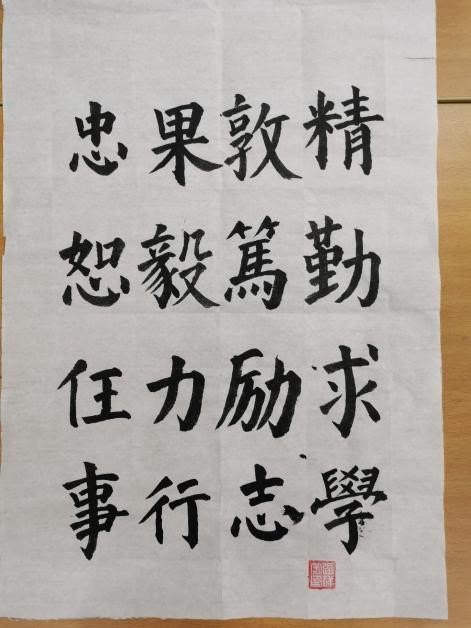 精勤求學
敦篤励志
果毅力行
忠恕任事